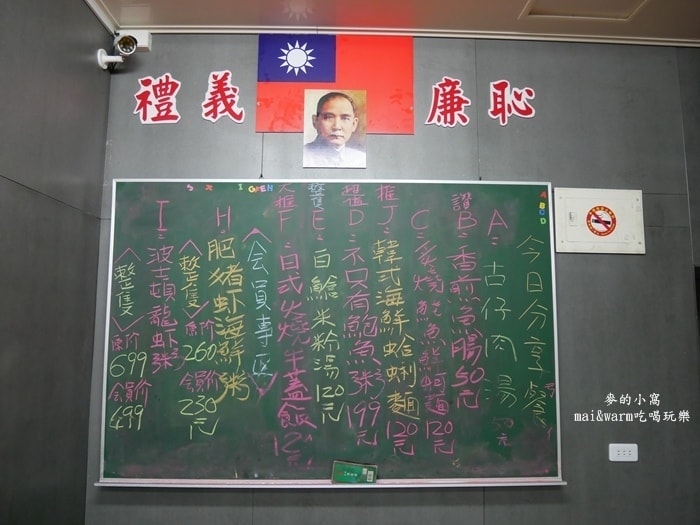 禮義
廉恥
今日分享餐
A：古仔肉湯 50元
讚 B：香煎魚腸 50元
C：魚麵 120元
推 J：韓式海鮮蛤蜊麵 120元
推 D：不只有鮑魚粥 199元
E：白鯧米粉湯 120元
大推 F：日式火燒牛蓋飯 120元
〈會員專區〉
H：肥豬蝦海鮮粥
〈整隻〉原价260元 會員价230元
I：波士頓龍蝦粥
〈整隻〉原价699 會員价499
麥的小窩
mai&warm吃喝玩樂